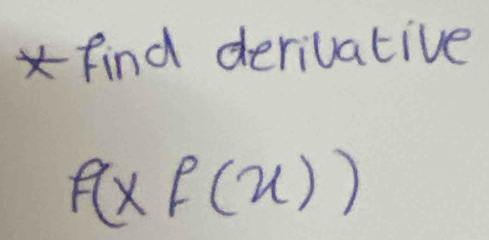 * find derivative
f(x f(x))